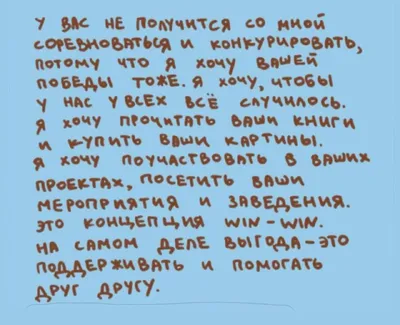 У ВАС НЕ ПОЛУЧИТСЯ СО МНОЙ
СОРЕВНОВАТЬСЯ И КОНКУРИРОВАТЬ,
ПОТОМУ ЧТО Я ХОЧУ ВАШЕЙ
ПОБЕДЫ ТОЖЕ. Я ХОЧУ, ЧТОБЫ
У НАС У ВСЕХ ВСЁ СЛУЧИЛОСЬ.
Я ХОЧУ ПРОЧИТАТЬ ВАШИ КНИГИ
И КУПИТЬ ВАШИ КАРТИНЫ.
Я ХОЧУ ПОУЧАСТВОВАТЬ В ВАШИХ
ПРОЕКТАХ, ПОСЕТИТЬ ВАШИ
МЕРОПРИЯТИЯ И ЗАВЕДЕНИЯ.
ЭТО КОНЦЕПЦИЯ WIN-WIN.
НА САМОМ ДЕЛЕ ВЫГОДА - ЭТО
ПОДДЕРЖИВАТЬ И ПОМОГАТЬ
ДРУГ ДРУГУ.